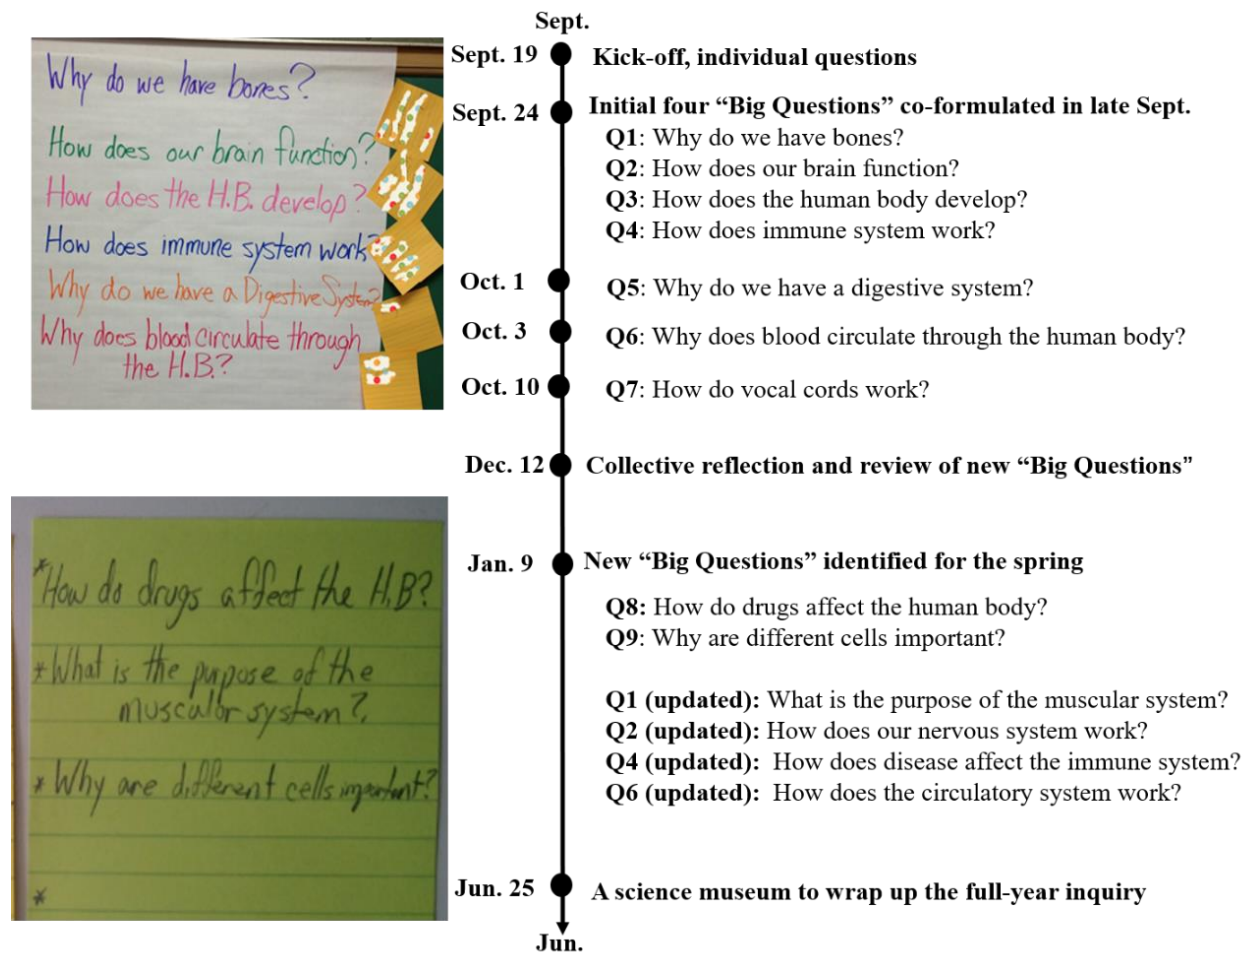 Why do we have bones?
How does our brain function?
How does the H.B. develop?
How does immune system work?
Why do we have a Digestive System?
Why does blood circulate through
the H.B.?
*How do drugs affect the H.B?
*What is the purpose of the
muscular system?
*Why are different cells important?
*
Sept.
Sept. 19 Kick-off, individual questions
Sept. 24 Initial four “Big Questions” co-formulated in late Sept.
Q1: Why do we have bones?
Q2: How does our brain function?
Q3: How does the human body develop?
Q4: How does immune system work?
Oct. 1 Q5: Why do we have a digestive system?
Oct. 3 Q6: Why does blood circulate through the human body?
Oct. 10 Q7: How do vocal cords work?
Dec. 12 Collective reflection and review of new “Big Questions”
Jan. 9 New “Big Questions” identified for the spring
Q8: How do drugs affect the human body?
Q9: Why are different cells important?
Q1 (updated): What is the purpose of the muscular system?
Q2 (updated): How does our nervous system work?
Q4 (updated): How does disease affect the immune system?
Q6 (updated): How does the circulatory system work?
Jun. 25 A science museum to wrap up the full-year inquiry
Jun.